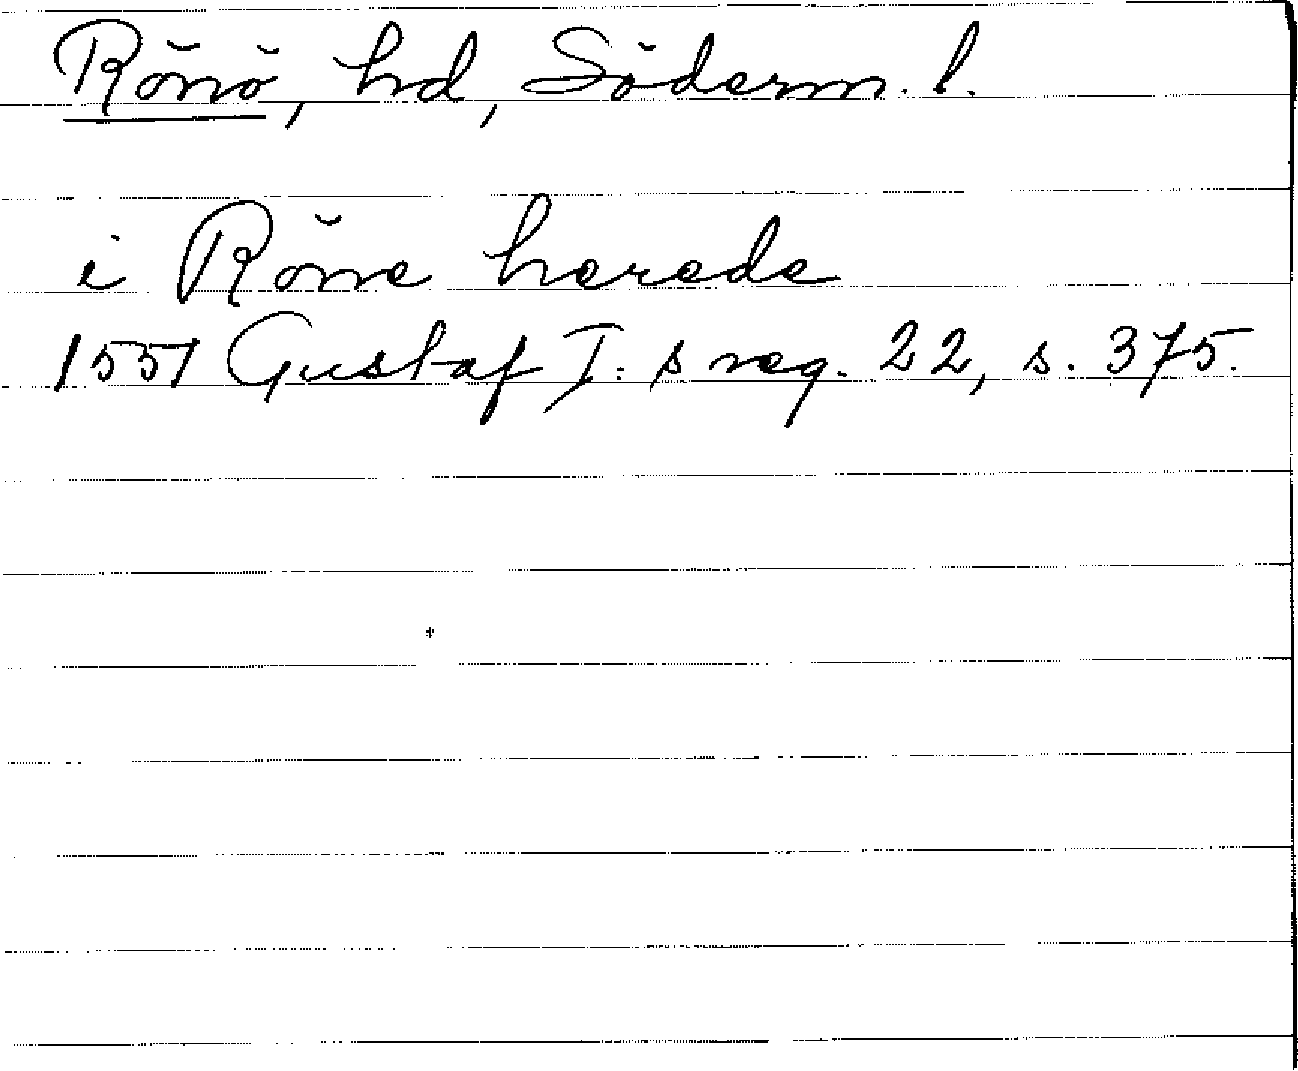 Rönö, hd, Söderm. l.
i Röne herede
1551 Gustaf I:s reg. 22, s. 375.